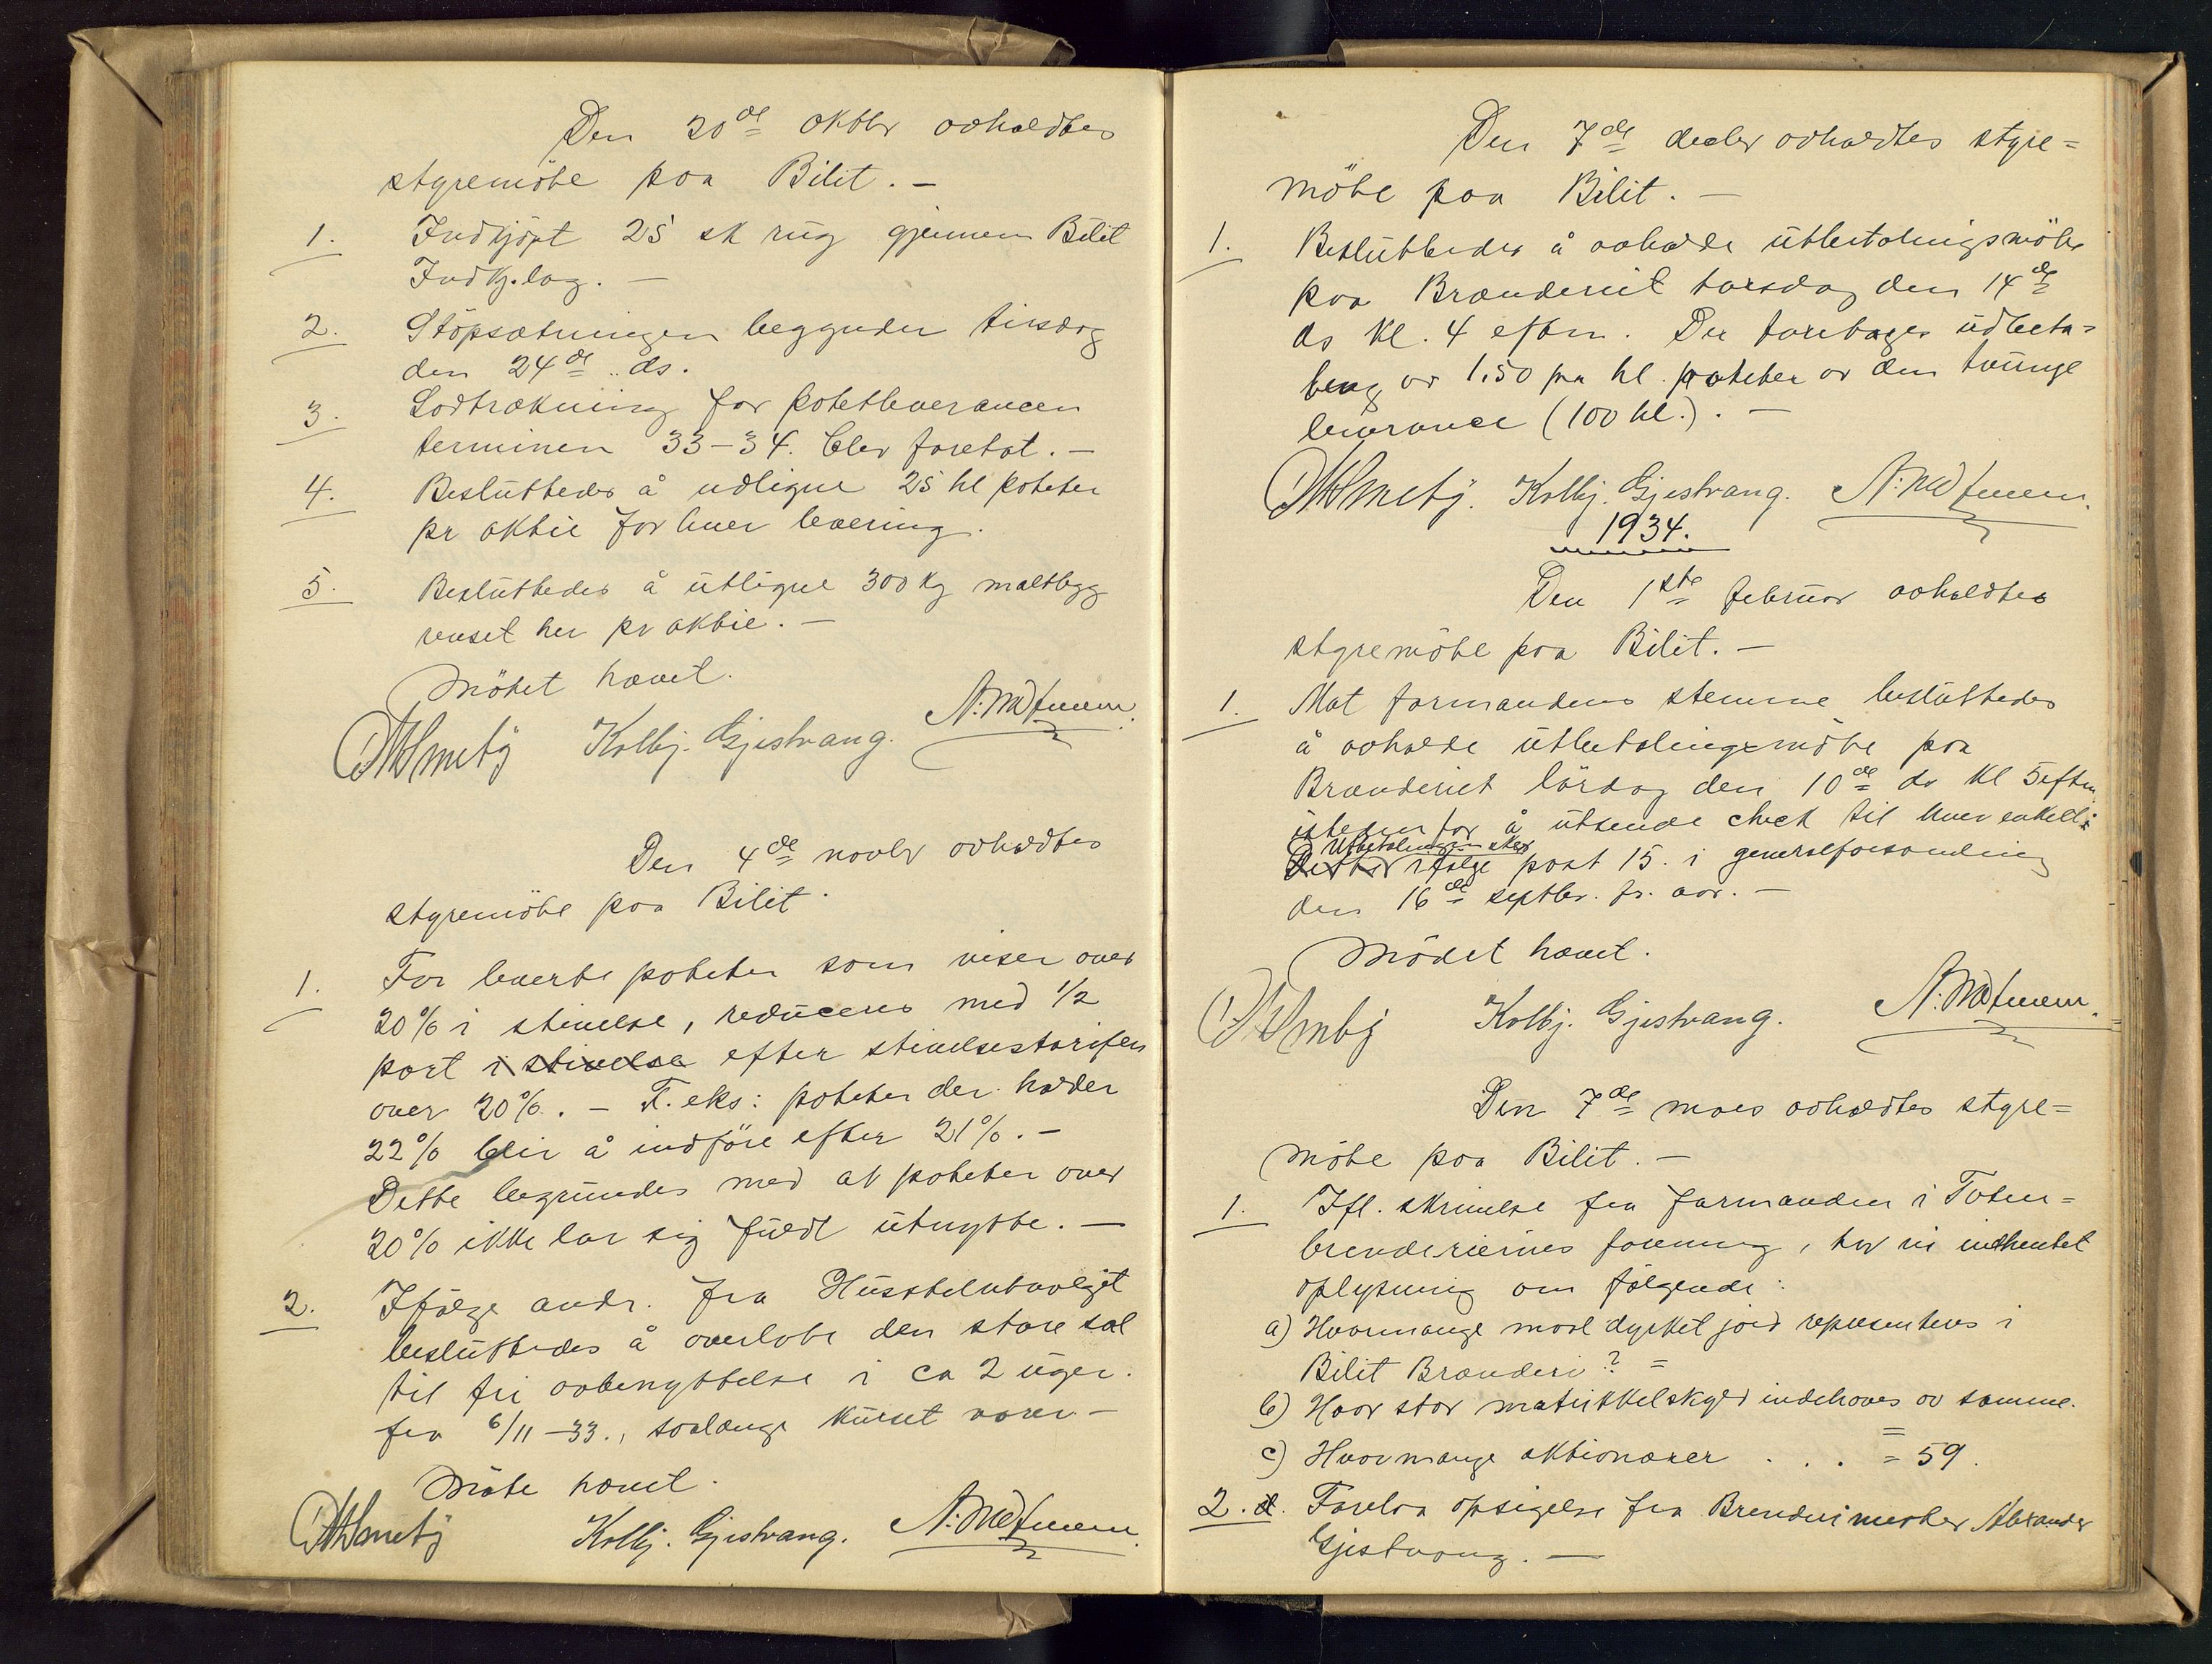 Den 20de oktbr avholdtes
styremöte paa Bilit. –
1. Indkjöpt 25 sk rug gjennem Bilit
Indkj.lag. –
2. Stöpsætningen begynder tirsdag
den 24de ds.
3. Lodtrækning for potetleverancen
terminen 33–34. blev foretat. –
4. Beslutteds å udligne 25 hl poteter
pr aktie for hver levering.
5. Besluttedes å utligne 300 kg maltbygg
renset her pr aktie. –
Mötet hævet.
Kolbj. Gjestvang.
Den 4de novbr avholdtes
styremöte paa Bilit.
1. For leverte poteter som viser over
20% i stivelse, reduceres med 1/2
part i stivelse efter stivelsestariffen
over 20%. – F. eks: poteter der holder
22% blir å indföre efter 21%. –
Dette begrundes med at poteter over
20% ikke lar sig fuldt utnytte. –
2. Ifölge andr. fra Husstelutvalget
besluttedes å overlate den store sal
til fri avbenyttelse i ca 2 uger.
fra 6/11–33., saalenge kurset varer –
Möte hævet.
Kolbj. Gjestvang.
Den 7de decbr avholdtes styre=
möte paa Bilit. –
1. Besluttedes å avholde utbetalingsmöte
paa Brænderiet torsdag den 14de
ds kl. 4 eftm. Der foretages udbeta=
ling av 1.50 pr hl. poteter av den tvungne
leverance (100 hl.). –
Kolbj. Gjestvang.
1934.
Den 1ste februar avholdtes
styremöte paa Bilit. –
1. Mot formandens stemme besluttedes
å avholde utbetalingsmöte paa
Brænderiet lördag den 10de ds kl 5 eftm.
istedenfor å utsende check til hver enkelt.
Utbetalingen sker
ifölge post 15. i generalforsamling
den 16de septbr. f. aar. –
Mödet hævet.
Kolbj. Gjestvang.
Den 7de mars avholdtes styre=
möte paa Bilit. –
1. Ifl. skrivelse fra formanden i Toten=
brenderiernes forening, har vi indhentet
oplysning om fölgende:
a) Hvormange maal dyrket jord represænteres i
Bilit Brænderi? =
b) Hvor stor matrikkelskyld indehaves av samme.
=
c) Hvormange aktionærer . . . = 59.
2. d. Forelaa opsigelse fra Brenderimester Alexander
Gjestvang. –